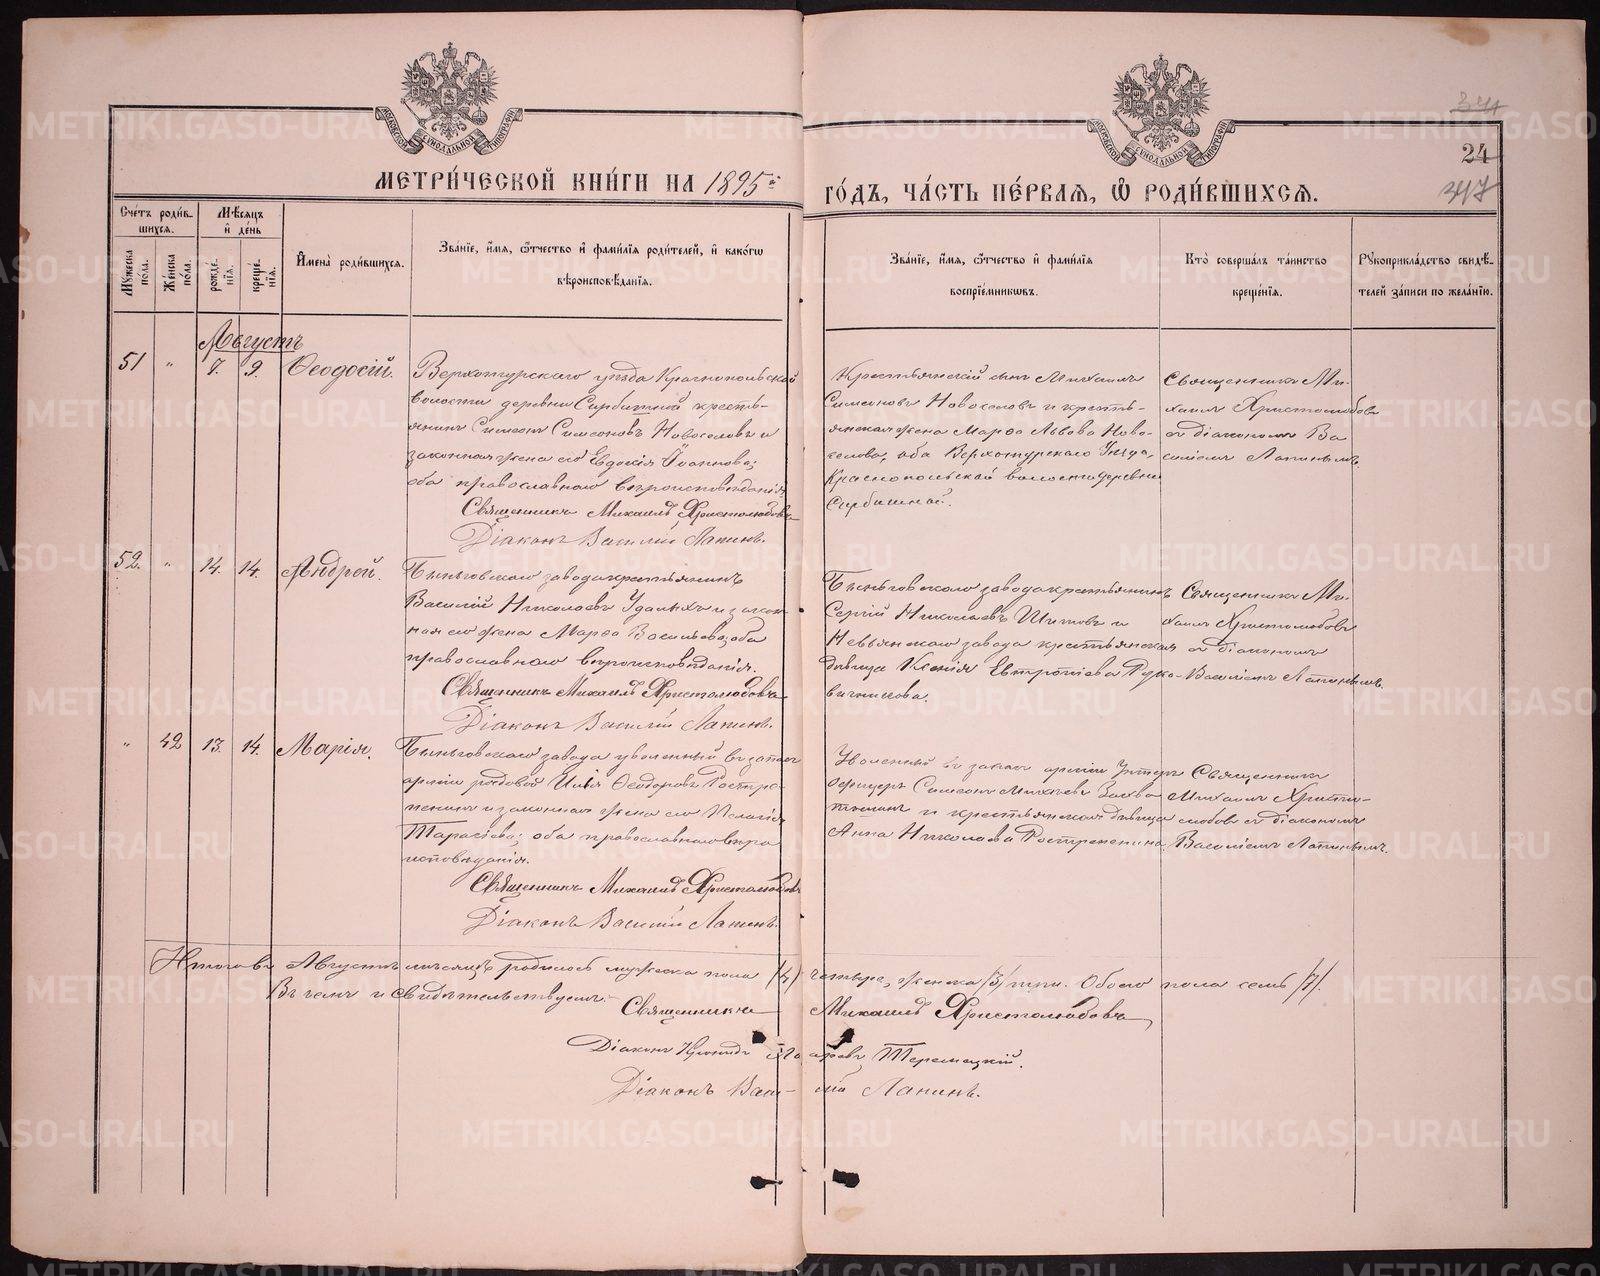 МЕТРИ́ЧЕСКОЙ КНИ́ГИ НА 1895й
ГО́ДЪ, ЧА́СТЬ ПЕ́РВАЯ, Ѽ РОДИ́ВШИХСЯ.
24
347
Сче́тъ роди́вшихся.
Мѣ́сяцъ и҆ де́нь
Мꙋ́жеска по́ла.
Же́нска по́ла.
рожде́нїя.
креще́нїя.
И҆мена̀ роди́вшихся.
Зва́нїе, и҆́мя, ѻ҆́тчество и҆ фами́лїя роди́телей, и҆ како́гѡ
вѣроисповѣ́данїя.
Зва́нїе, и҆́мя, ѻ҆́тчество и҆ фами́лїя
воспрїе́мникѡвъ.
Кто̀ соверша́лъ та́инство
креще́нїя.
Рꙋкоприкла́дство свидѣ́-
телей за́писи по жела́нїю.
Августъ
51 " 7. 9. Ѳеодосій.
Верхотурскаго уѣзда Краснопольской
волости деревни Сербишной кресть-
янинъ Симеонъ Симеоновъ Новоселовъ и
законная жена его Евдокія Іоаннова;
оба православнаго вѣроисповѣданія.
Священникъ Михаилъ Христолюбовъ
Діаконъ Василій Лапинъ.
Крестьянскій сынъ Михаилъ
Симеоновъ Новоселовъ и кресть-
янская жена Марѳа Львова Ново-
селова, оба Верхотурскаго Уѣзда,
Краснопольской волости деревни
Сербишной.
Священникъ Ми-
хаилъ Христолюбовъ
съ діакономъ Ва
силіемъ Лапинымъ.
52. " 14. 14. Андрей.
Быньговскаго завода крестьянинъ
Василій Николаевъ Удалыхъ и закон-
ная его жена Марѳа Васильева; оба
православнаго вѣроисповѣданія.
Священникъ Михаилъ Христолюбовъ
Діаконъ Василій Лапинъ.
Быньговскаго завода крестьянинъ
Сергій Николаевъ Шитовъ и
Невьянскаго завода крестьянская
дѣвица Ксенія Евтропіева Руко-
вичникова.
Священникъ Ми-
хаилъ Христолюбовъ
съ діакономъ
Василіемъ Лапинымъ.
" 42 13. 14. Марія.
Быньговскаго завода уволенный въ запасъ
арміи рядовой Илія Ѳеодоровъ Ростре-
пенинъ и законная жена его Пелагія
Тарасіева; оба православнаго вѣро
исповѣданія.
Священникъ Михаилъ Христолюбовъ
Діаконъ Василій Лапинъ.
Уволенный въ запасъ арміи Унтеръ
Офицеръ Симеонъ
и крестьянская дѣвица
Анна Николаева Ростpепенина.
Священникъ
Михаилъ Христо-
любовъ съ діакономъ
Василіемъ Лапинымъ.
Итого въ Августѣ мѣсяцѣ родилось мужеска пола /4/ четыре, женска /3/ три. Обоего пола семь /7/.
Въ чемъ и свидѣтельствуемъ:
Священникъ Михаилъ Христолюбовъ
Діаконъ Теремецкій.
Діаконъ Василій Лапинъ.
METRIKI.GASO-URAL.RU